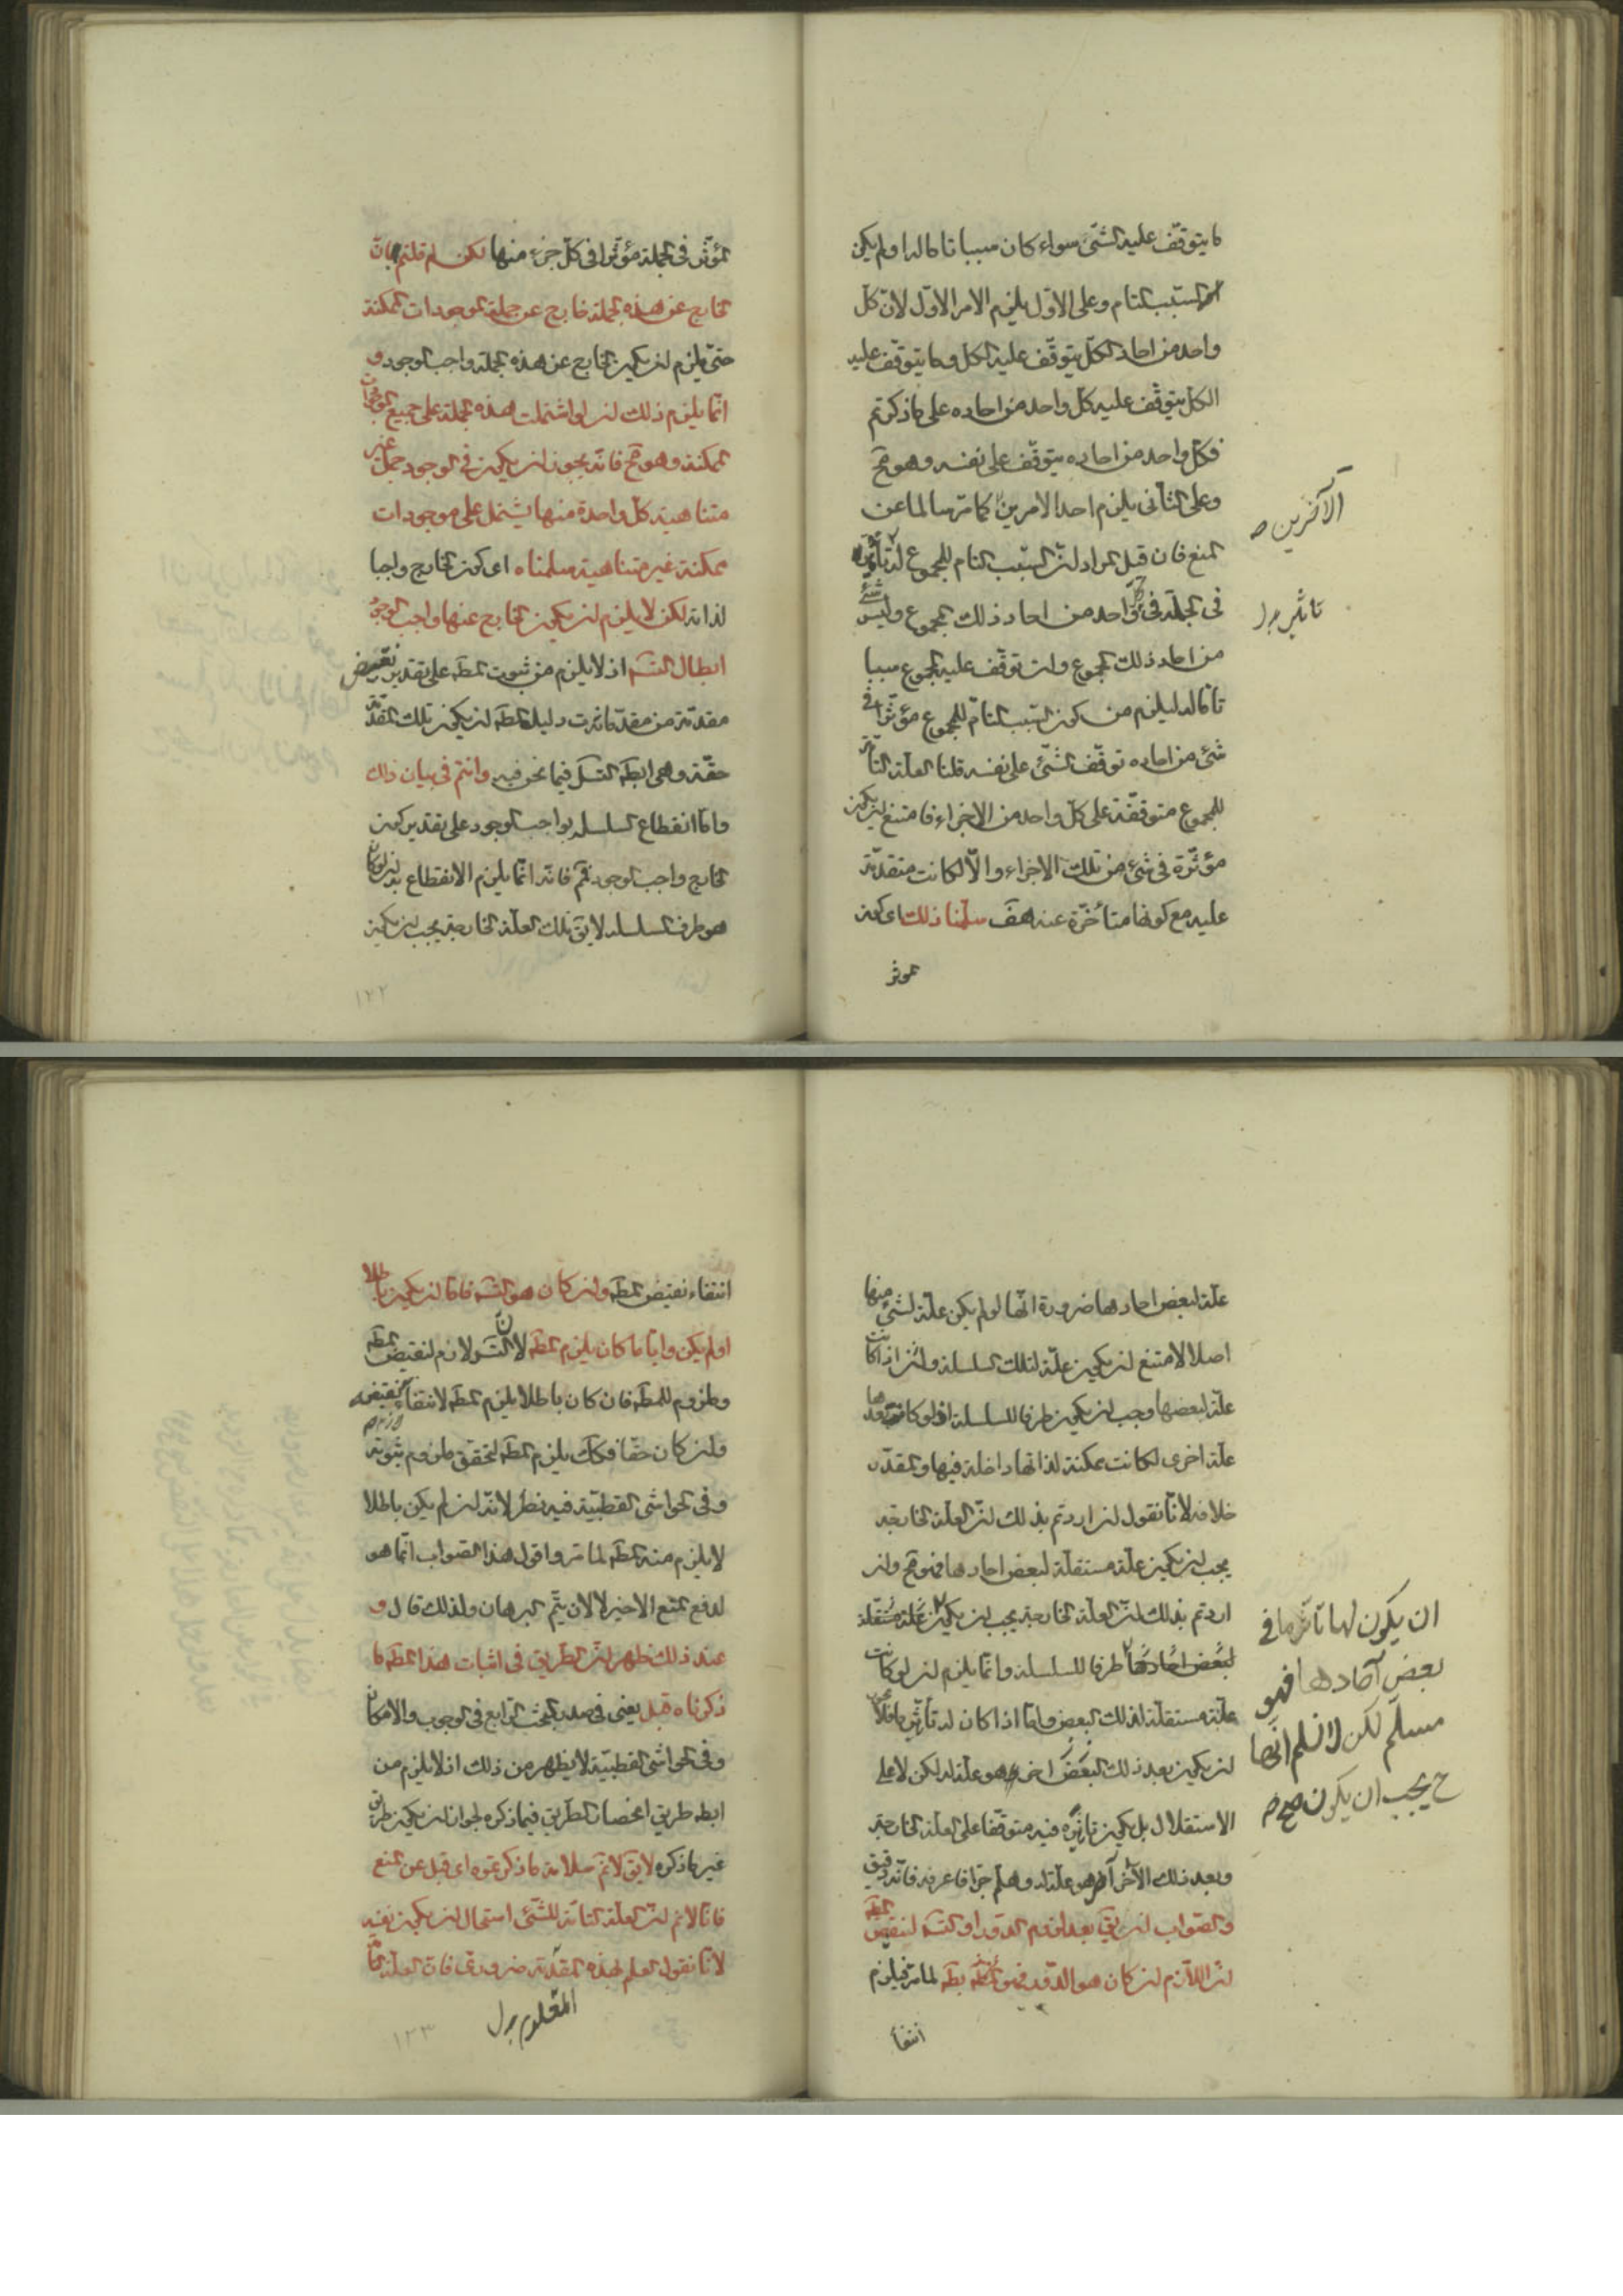 ما يتوقف عليه الشئ سواء كان سببا تاما له او لم يكن
السبب التام وعلى الاول يلزم الامر الاول لان كل
واحد من احاد الكل يتوقف عليه الكل وما يتوقف عليه
الكل يتوقف عليه كل واحد من احاده على ما ذكرتم
فكل واحد من احاده يتوقف على نفسه وهو مح
وعلى الثانى يلزم احد الامرين كما مر سالما عن
الآخرين صـ
المنع فان قيل المراد ان السبب التام للمجموع له
فى الجملة فى كل واحد من احاد ذلك المجموع وليس شئ
تاثير بدل
من احاد ذلك المجموع وان توقف عليه المجموع سببا
تاما له ليلزم من كون السبب التام للمجموع مؤثرا فى
شئ من احاده توقف الشئ على نفسه قلنا العلة التامة
للمجموع متوقفة على كل واحد من الاجزاء فامتنع ان يكون
مؤثرة فى شئ من تلك الاجزاء والا لكانت متقدمة
عليه مع كونها متأخرة عنه هف سلمنا ذلك اى كون
المؤثر
المؤثر فى الجملة مؤثرا فى كل جزء منها لكن لم قلتم بان
الخارج عن هذه الجملة خارج عن جملة الموجودات الممكنة
حتى يلزم ان يكون الخارج عن هذه الجملة واجب الوجود و
انما يلزم ذلك ان لو اشتملت هذه الجملة على جميع الموجودات
الممكنة وهو مم فانه يجوز ان يكون فى الوجود جمل غير
متناهية كل واحدة منها يشتمل على موجودات
ممكنة غير متناهية سلمناه اى كون الخارج واجبا
لذاته لكن لا يلزم ان يكون الخارج عنها واجب الوجود
ابطال التسلسل اذ لا يلزم من ثبوت المط على تقدير نقيض
مقدمة من مقدمات دليل المط ان يكون تلك المقدمة
حقة وهى ابطال التسلسل فيما نحن فيه وانتم فى بيان ذلك
واما انقطاع السلسلة بواجب الوجود على تقدير كون
الخارج واجب الوجود فمم فانه انما يلزم الانقطاع به ان لو كان
هو طرف السلسلة لا يق تلك العلة الخارجة يجب ان يكون
١٢٢
علة لبعض احادها ضرورة انها لو لم يكن علة لشئ منها
اصلا لامتنع ان يكون علة لتلك السلسلة وان اذا كانت
علة لبعضها وجب ان يكون طرفا للسلسلة اذ لو كانت بعدها
علة اخرى لكانت ممكنة لذاتها داخلة فيها والمقدر
خلافه لانا نقول ان اردتم بذلك ان العلة الخارجة
يجب ان يكون علة مستقلة لبعض احادها فهو مم وان
اردتم بذلك ان العلة الخارجة يجب ان يكون علة مستقلة
لبعض احادها طرفا للسلسلة وانما يلزم ان لو كانت
علة مستقلة لذلك البعض واما اذا كان له تأثير ما فلا
ان يكون بعد ذلك البعض اخر هو علة له لكن لا على
الاستقلال بل يكون تاثيره فيه متوقفا على العلة الخارجة
وبعد ذلك الآخر آخر هو علة له وهلم جرا فاعرفه فانه دقيق
والصواب ان يق بعد لزوم الدور او التسلسل لنقيض المط
ان اللازم ان كان هو الدور فهو بط لما مر فيلزم
ان يكون لها تاثير ما فى
بعض آحادها فهو
مسلم لكن لا نسلم انها
ح يجب ان يكون صح صـ
انتفاء
انتفاء نقيض المط وان كان هو التسلسل فاما ان يكون باطلا
او لم يكن وايا ما كان يلزم المط لان التسلسل لازم لنقيض المط
وملزوم للمط فان كان باطلا يلزم المط لانتفاء نقيضه
وان كان حقا فكذلك يلزم المط لتحقق ملزوم ثبوته
وفى الحواشى القطبية فيه نظر لانه ان لم يكن باطلا
لا يلزم منه المط لما مر واقول هذا الصواب انما هو
لدفع المنع الاخير لا لان يتم البرهان ولذلك قال و
عند ذلك ظهر ان الطريق فى اثبات هذا المط ما
ذكرناه قبل يعنى فى صدر البحث الرابع فى الوجوب والامكان
وفى الحواشى القطبية لا يظهر من ذلك اذ لا يلزم من
ابطال طريق انحصار الطريق فيما ذكره لجواز ان يكون طريق
غير ما ذكره لا يق لا نم سلامة ما ذكرتموه اى قبل عن المنع
فانا لا نم ان العلة التامة للشئ استحال ان يكون نفسه
لانا نقول العلم بهذه المقدمة ضرورى فان العلة التامة
المعلوم بدل
١٢٣